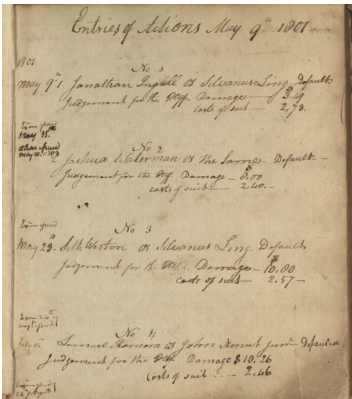 Entries of Actions May 9th 1801
1801
No 1
May 9th Jonathan Ingell vs Silvanus Ling. Default
Judgement for the Plff. Damage $ 3.49
costs of suit — 2.73.
May
No 2
Joshua Waterman vs the Same. Default —
Judgement for the Plff Damage — 8.00
costs of suit — 2.40. —
No 3
May 23. Seth Weston vs Silvanus Ling Default
Judgement for the Plff. Damage — 10.00
costs of suit — 2.57 —
No 4
July Lemuel vs John Defaulted
Judgement for the Plff Damage $ 10.26
Costs of suit — 2.46